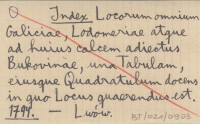 Index Locorum omnium
Galiciae, Lodomeriae atque
ad huius calcem adiectus
Bukovinae, una Tabulam,
eiusque Quadratulum docens
in quo Locus quaerendus est.
1794. — Lwow.